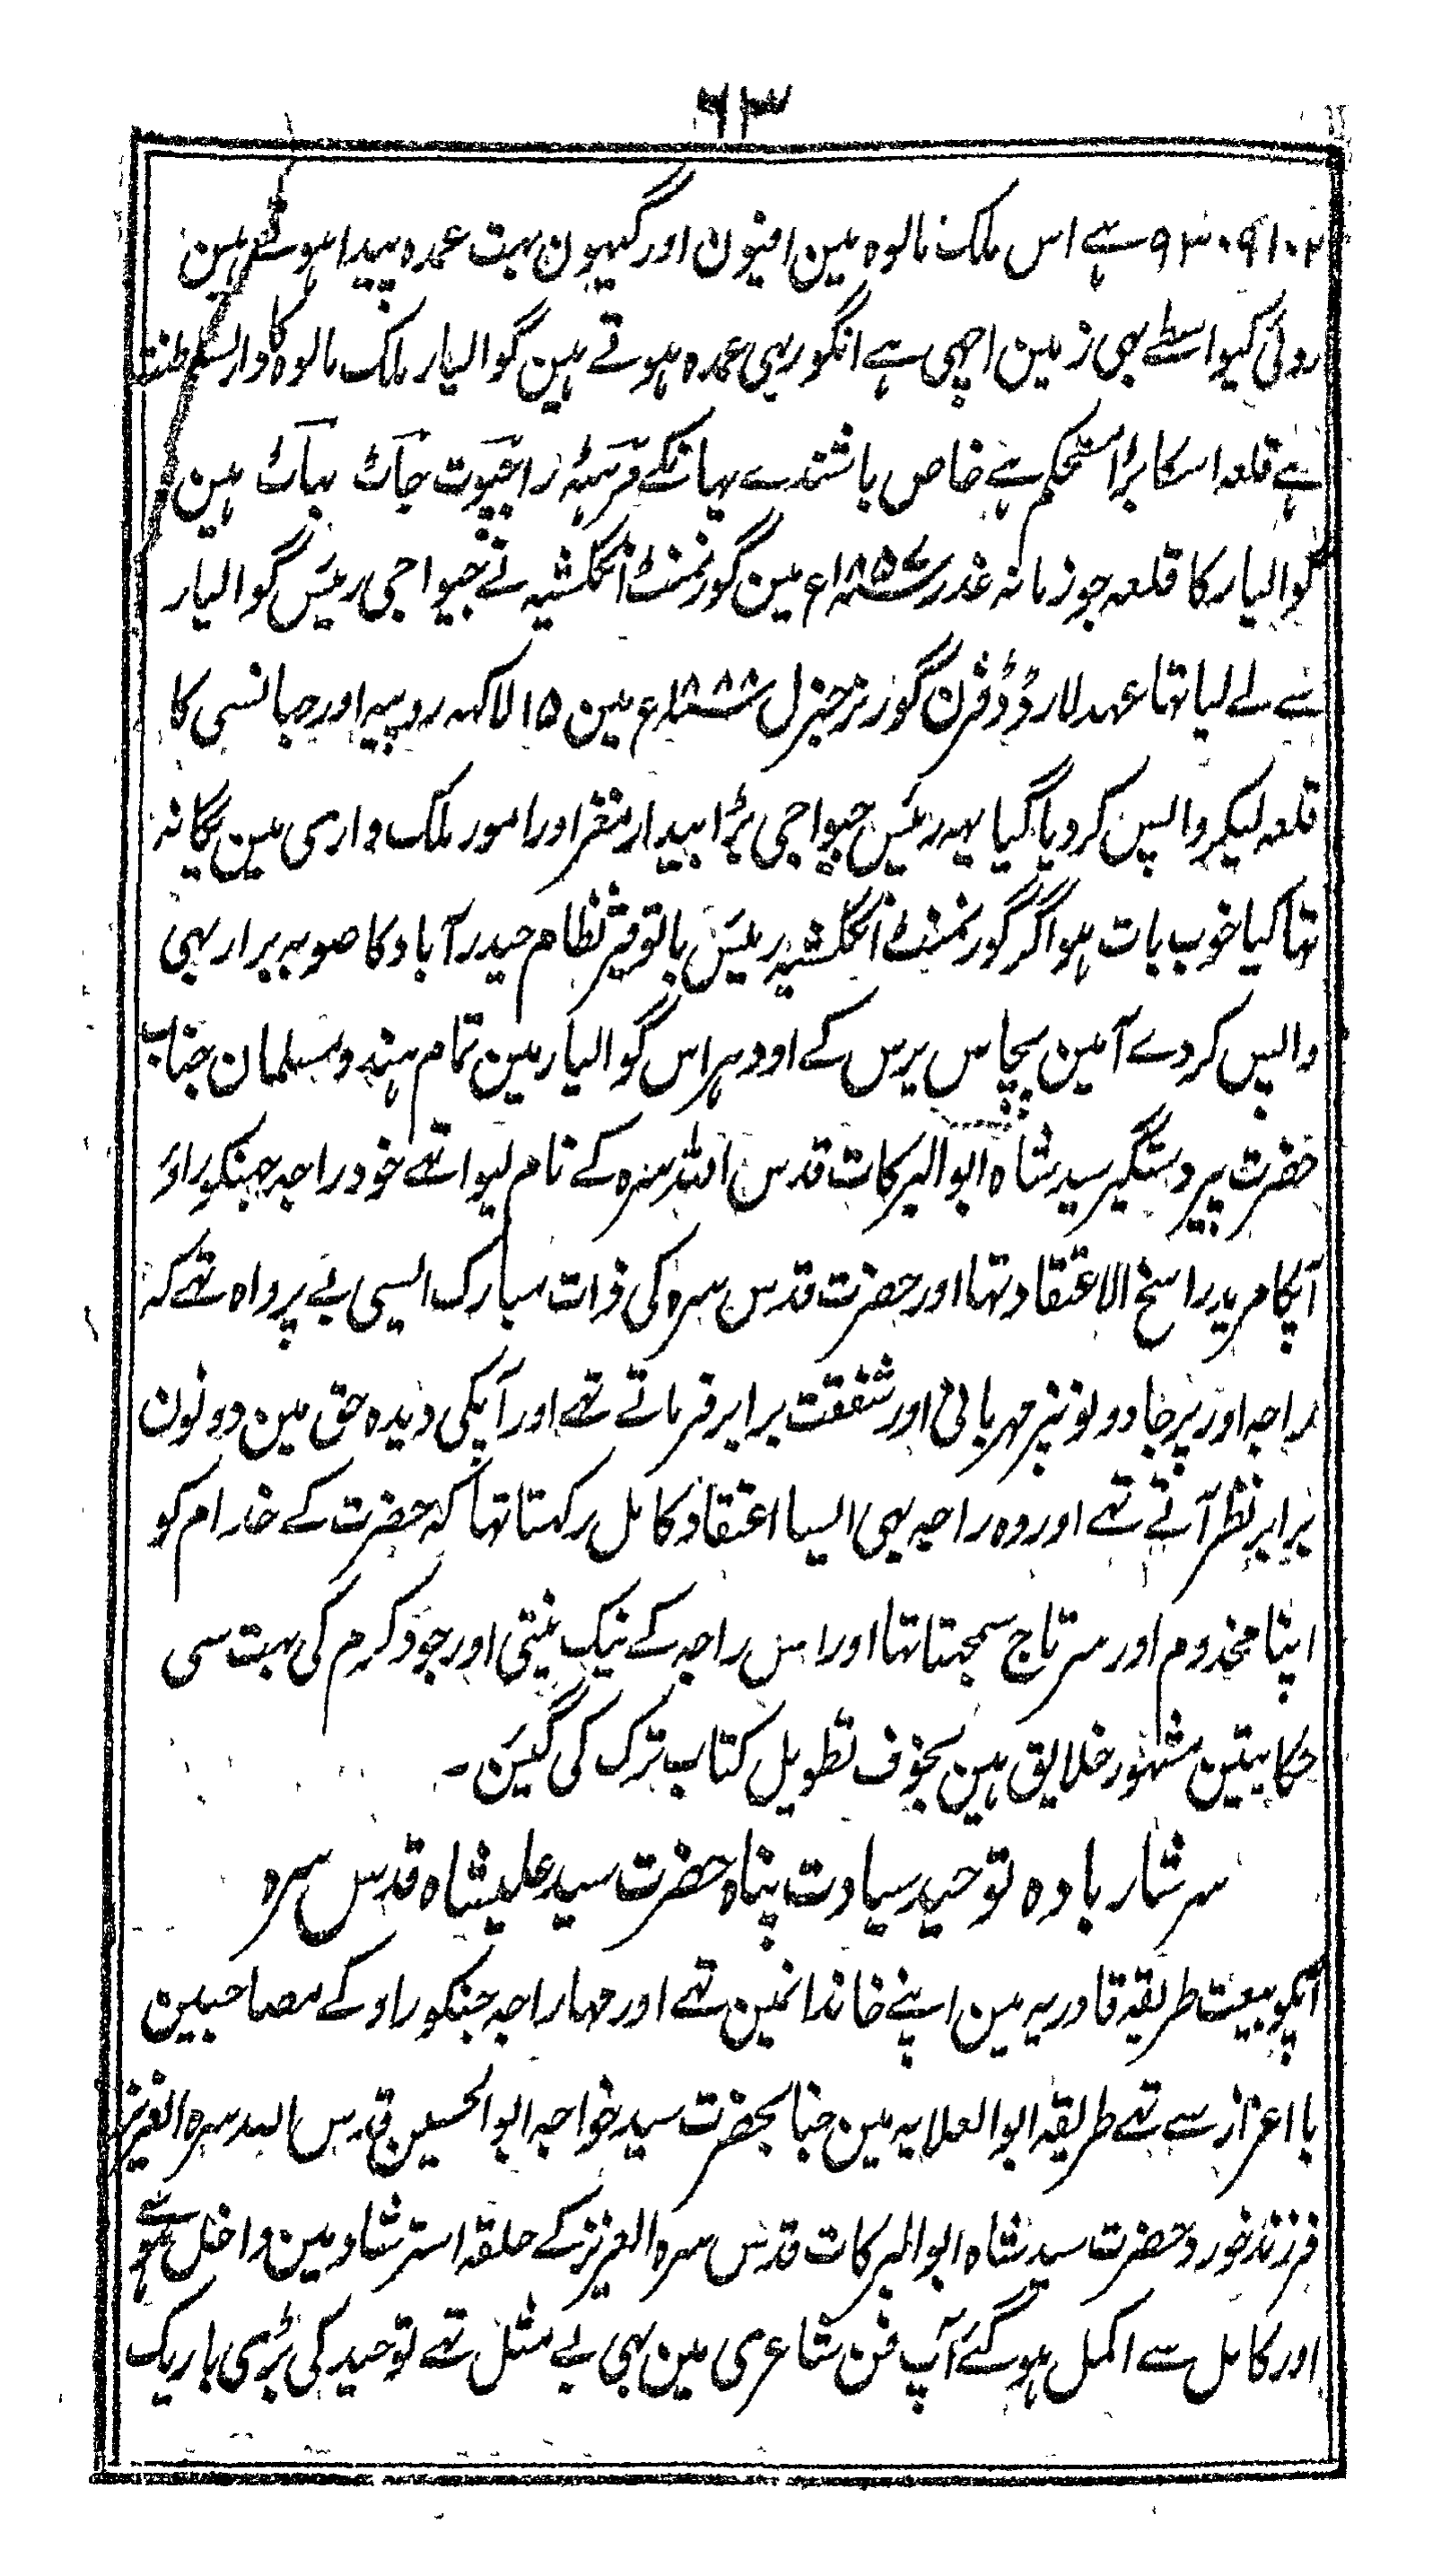 ۶۳
۹۳۰۹۱۰۲ ہے اس ملک مالوہ مین افیون اور گیہون بہت عمدہ پیدا ہوتے ہین
روئی کیواسطے بھی زمین اچھی ہے انگور بھی عمدہ ہوتے ہین گوالیار ملک مالوہ کا دارالسلطنت
ہے قلعہ اسکا بڑا مستحکم ہے خاص باشندے یہانکے مرہٹہ راجپوت جاٹ بہاٹ ہین
گوالیار کا قلعہ جو زمانہ غدر ۱۸۵۷ء مین گورنمنٹ انگلشیہ نے جیواجی رئیس گوالیار
سے لے لیا تہا عہد لارڈ ڈفرن گورنر جنرل ۱۸۸۸ء مین ۱۵ لاکہہ روپیہ اور جہانسی کا
قلعہ لیکر واپس کردیا گیا یہہ رئیس جیواجی بڑا بیدار مغز اور امور ملک داری مین یگانہ
تہا کیا خوب بات ہو اگر گورنمنٹ انگلشیہ رئیس باتوقیر نظام حیدرآباد کا صوبہ برار بھی
واپس کردے آمین پچاس برس کے اودہر اس گوالیار مین تمام ہندو مسلمان جناب
حضرت پیر دستگیر سید شاہ ابوالبرکات قدس اللہ سرہ کے نام لیوا تھے خود راجہ جہنکوراؤ
آپکا مرید راسخ الاعتقاد تہا اور حضرت قدس سرہ کی ذات مبارک ایسی بے پرواہ تھے کہ
راجہ اور پرجا دونونپر مہربانی اور شفقت برابر فرماتے تھے اور آپکی دیدہ حق مین دونون
برابر نظر آتے تھے اور وہ راجہ بھی ایسا اعتقاد کامل رکہتا تہا کہ حضرت کے خدام کو
اپنا مخدوم اور سرتاج سمجہتا تہا اور اس راجہ کے نیک نیتی اور جود کرم کی بہت سی
حکایتین مشہور خلایق ہین بخوف تطویل کتاب ترک کی گیئن ۔
سرشار بادہ توحید سیادت پناہ حضرت سید علیشاہ قدس سرہ
آپکو بیعت طریقہ قادریہ مین اپنے خاندانمین تھے اور مہاراجہ جنکوراو کے مصاحبین
بااعزاز سے تھے طریقہ ابوالعلایہ مین جنابحضرت سید خواجہ ابوالحسین قدس اللہ سرہ العزیز
فرزند خورد حضرت سید شاہ ابوالبرکات قدس سرہ العزیز کے حلقہ استرشاد مین داخل ہوئے
اور کامل سے اکمل ہوگئے آپ فن شاعری مین بھی بے مثل تھے توحید کی بڑی باریک